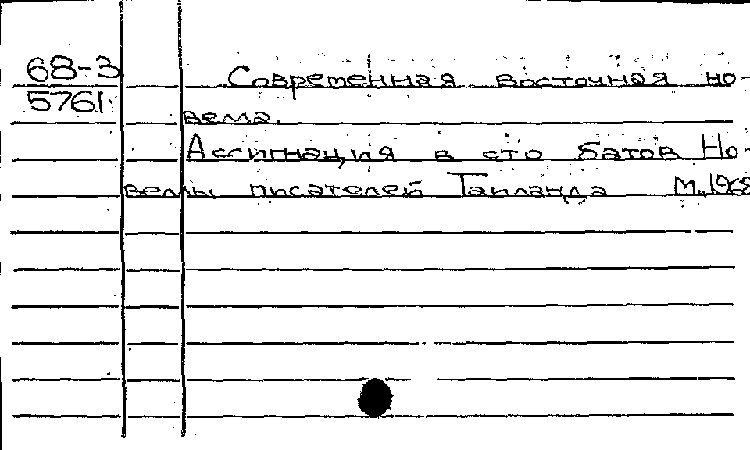 68-3
5761
Современная восточная но-
велла.
Ассигнация в сто батов Но-
веллы писателей Таиланда М., 1968